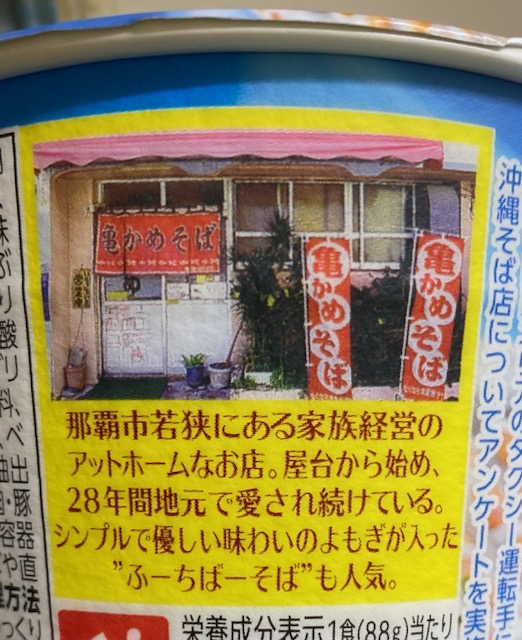 亀かめそば
亀かめそば
亀かめそば
那覇市若狭にある家族経営の
アットホームなお店。屋台から始め、
28年間地元で愛され続けている。
シンプルで優しい味わいのよもぎが入った
”ふーちばーそば”も人気。
栄養成分表示1食(88g)当たり
沖縄そば店についてアンケートを実
のタクシー運転手